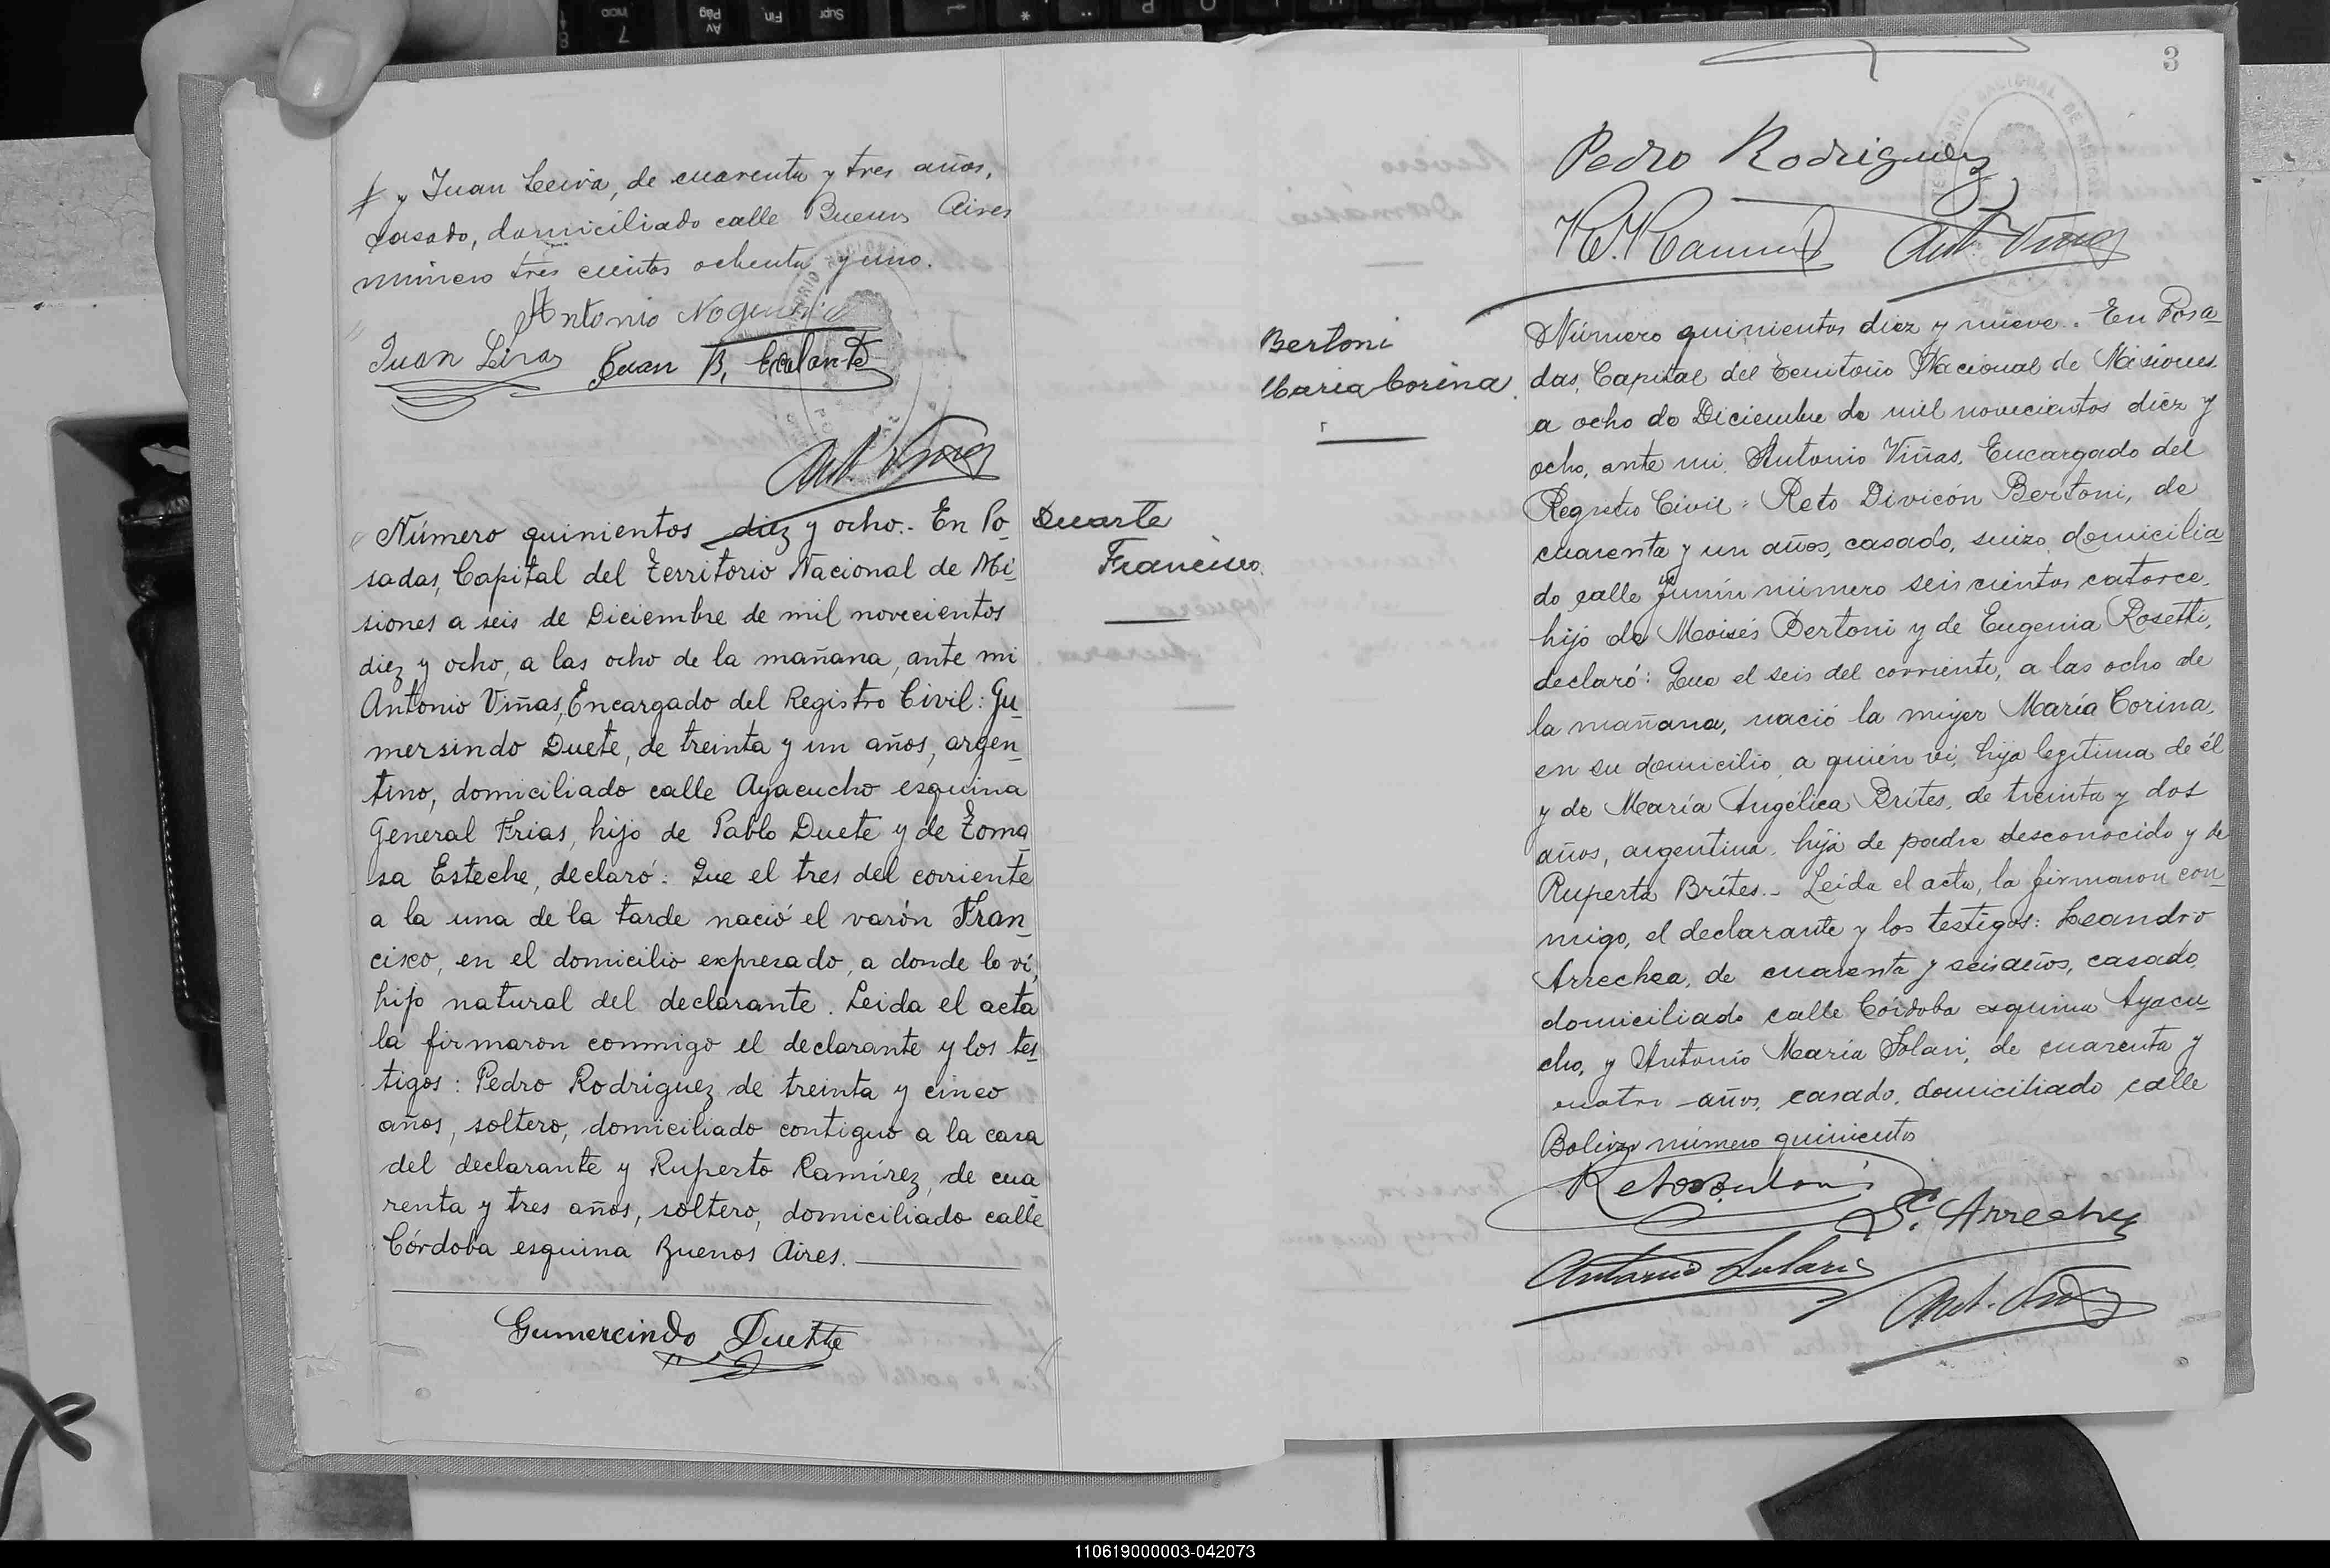 y Juan Leiva, de cuarenta y tres años,
casado, domiciliado calle Buenos Aires
número tres cientos ochenta y uno.
Antonio Noguera
Juan Leiva Juan B. Escalante
Ant. Viñas
Número quinientos diez y ocho.- En Po_
sadas, Capital del Territorio Nacional de Mi_
siones a seis de Diciembre de mil novecientos
diez y ocho, a las ocho de la mañana, ante mi
Antonio Viñas, Encargado del Registro Civil: Gu_
mersindo Duete, de treinta y un años, argen_
tino, domiciliado calle Ayacucho esquina
General Frias, hijo de Pablo Duete y de Toma_
sa Esteche, declaró: Que el tres del corriente
a la una de la tarde nació el varón Fran_
cisco, en el domicilio expresado, a donde lo ví,
hijo natural del declarante. Leida el acta
la firmaron conmigo el declarante y los tes_
tigos: Pedro Rodríguez de treinta y cinco
años, soltero, domiciliado contiguo a la casa
del declarante y Ruperto Ramírez, de cua_
renta y tres años, soltero, domiciliado calle
Córdoba esquina Buenos Aires.
Gumercindo Duette
Duarte
Francisco
3
Pedro Rodriguez
Ant. Viñas
Bertoni
Maria Corina
Número quinientos diez y nueve.- En Posa_
das, Capital del Territorio Nacional de Misiones
a ocho de Diciembre de mil novecientos diez y
ocho, ante mi, Antonio Viñas, Encargado del
Registro Civil: Reto Divicón Bertoni, de
cuarenta y un años, casado, suizo, domicilia_
do calle Junín número seis cientos catorce,
hijo de Moisés Bertoni y de Eugenia Rosetti,
declaró: Que el seis del corriente, a las ocho de
la mañana, nació la mujer María Corina,
en su domicilio, a quién vi, hija legítima de él
y de María Angélica Brites, de treinta y dos
años, argentina, hija de padre desconocido y de
Ruperta Brites.- Leída el acta, la firmaron con_
migo, el declarante y los testigos: Leandro
Arrechea, de cuarenta y seis años, casado,
domiciliado calle Córdoba esquina Ayacu_
cho, y Antonio María Solari, de cuarenta y
cuatro años, casado, domiciliado calle
Bolívar número quinientos
Reto Bertoni
L. Arrechea
Antonio Solari
Ant. Viñas
110619000003-042073